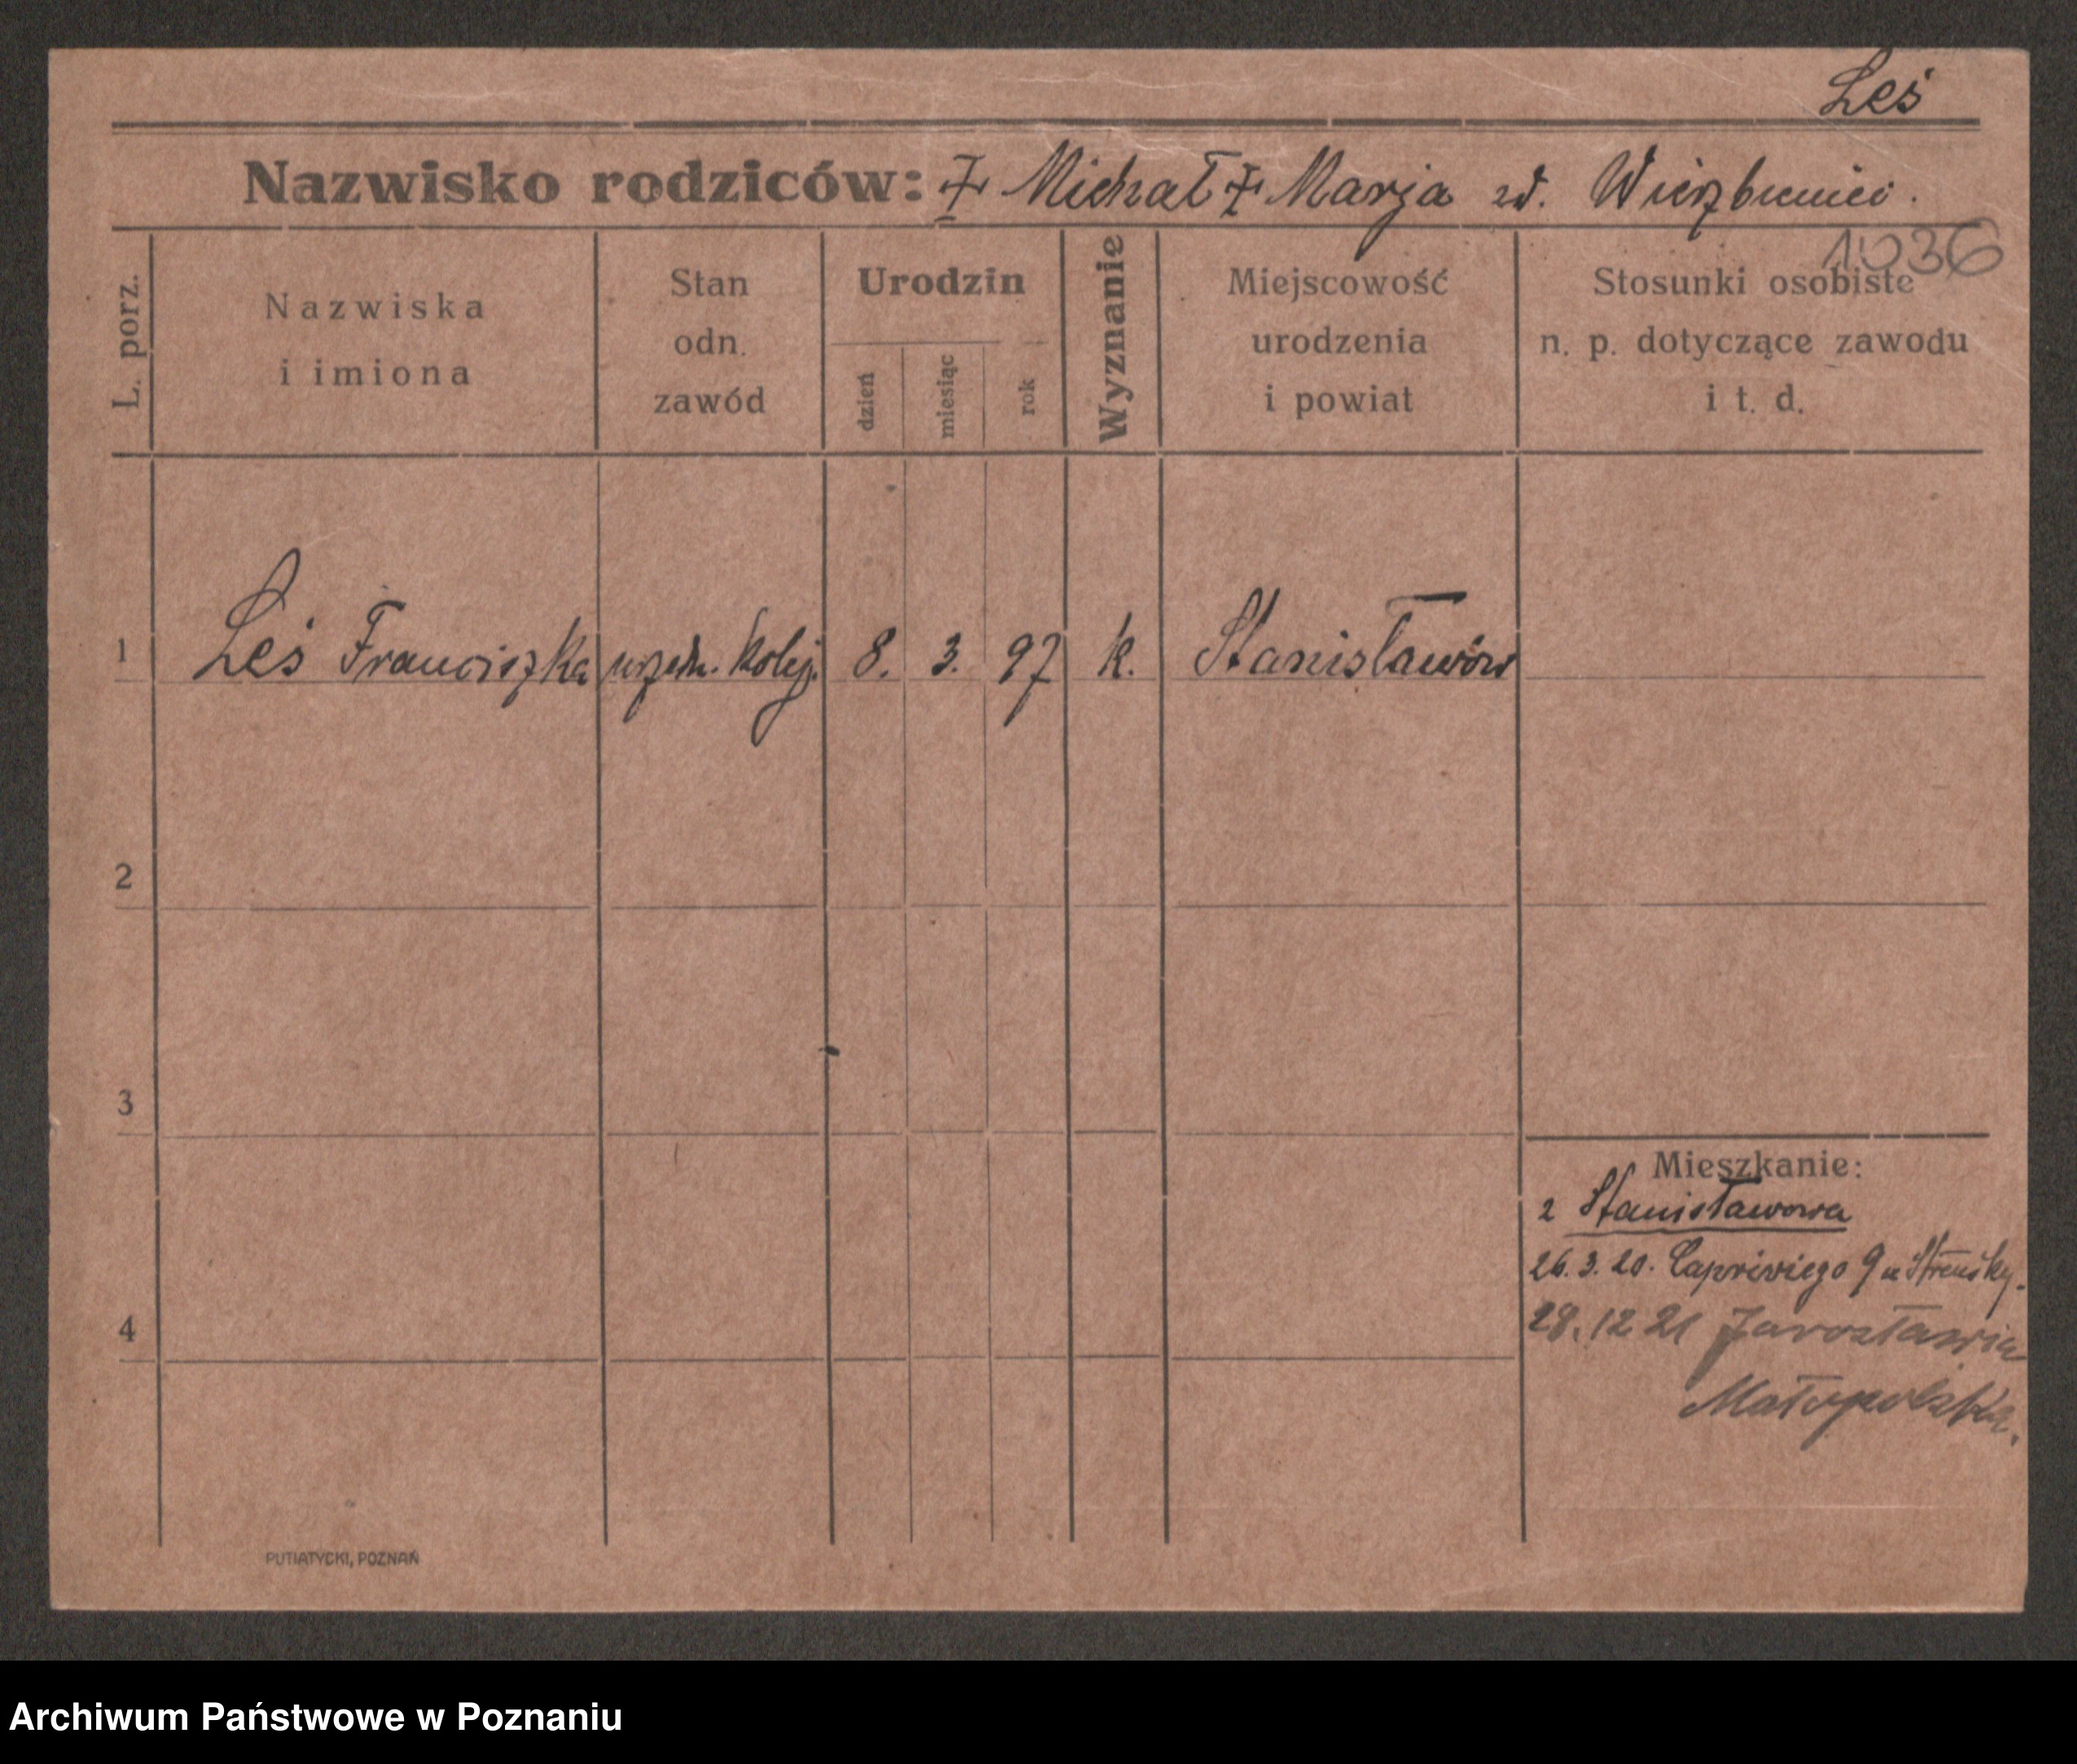 Leś
Nazwisko rodziców: ‡ Michał ‡ Marja zd.
1036
L. porz.
Nazwiska
i imiona
Stan
odn.
zawód
Urodzin
dzień
miesiąc
rok
Wyznanie
Miejscowość
urodzenia
i powiat
Stosunki osobiste
n. p. dotyczące zawodu
i t. d.
1 Leś Franciszka urzędn. kolej. 8. 3. 97 k. Stanisławów
2
3
4
Mieszkanie:
z Stanisławowa
26. 3. 20. Capriviego 9 u
28. 12 21 Jarosławia
Małopolska.
PUTIATYCKI, POZNAŃ
Archiwum Państwowe w Poznaniu